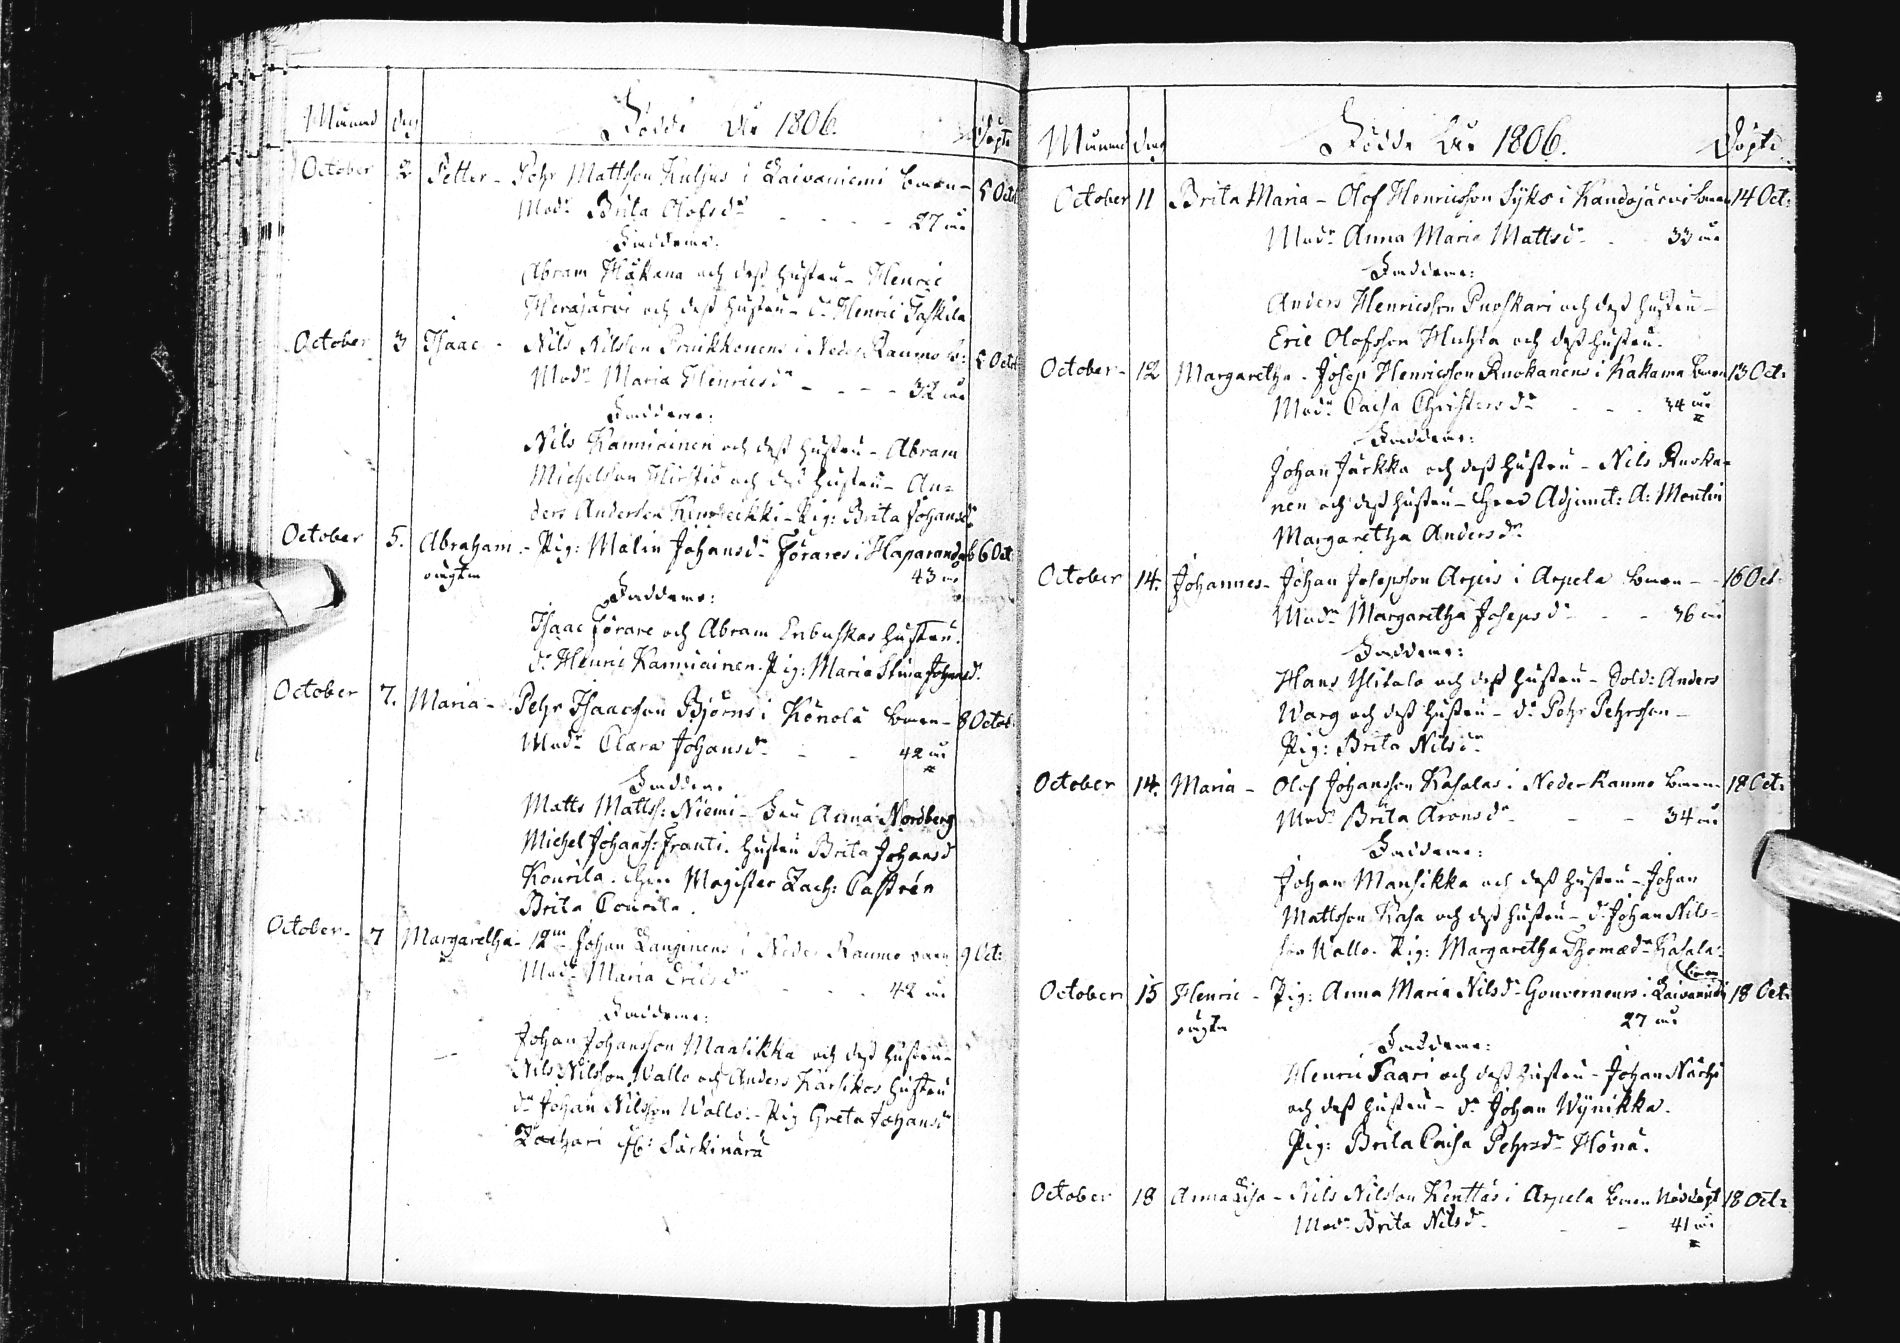 Månad dag Födde År 1806. Döpte
October 2 Petter - Pehr Mattsson Kuljus i Laivaniemi barn - 5 Oct:
Modr Brita Olofsdr - - - - 27 år
Faddrar:
Abram Häkana och dess hustru - Henric
Herajärvi och dess hustru - dr Henric Taskila
October 3 Isaac - Nils Nilsson Prui̇kkonens i Neder Raumo b: 5 Oct:
Modr Maria Henricsdr - - - - 32 år
Faddrar:
Nils Kanniainen och dess hustru - Abram
Michelsson Hirstiö och dess hustru - An=
ders Andersson - Pig: Brita Johansdr
October 5. Abraham - Pig: Malin Johansdr Förares i Haparanda b 6 Oct
oägta 43 år
Faddrar:
Isaac Förare och Abram Enbuskas hustru.
dr Henric Kanniainen. Pig: Maria Stina Johansd.
October 7. Maria - Pehr Isaacsson Björns i Könölä barn - 8 Octob:
Modr Clara Johansdr - - 42 år
Faddrar
Matts Mattss: Niemi - Fru Anna Nordberg
Michel Johanss: Franti. hustru Brita Johansd
Kourila. Herr Magister Zach: Castrén
Brita Courila.
October - 7 Margaretha - Johan Langinens i Neder Raumo barn 9 Oct:
Modr Maria Ericsdr - - 42 år
Faddrar:
Johan Johansson Mansikka och dess hustru -
Nils Nilsson Wallo och Anders Karsikos hustru
dr Johan Nilsson Wallo. - Pig Greta Johansdr
Zachari Särkinärä
Månad dag Födde År 1806. Döpte
October 11 Brita Maria - Olof Henricsson Syks i Kandojärvi barn 14 Oct:
Modr Anna Maria Mattsdr - - 33 år
Faddrar:
Anders Henricsson Puoskari och dess hustru -
Eric Olofsson Huhta och dess hustru.
October - 12 Margaretha - Josep Henricsson Ruokanens i Kakama barn 13 Oct:
Modr Caisa Christersdr - - - 34 år
Faddrar:
Johan Jarkka och dess hustru - Nils Ruoka=
nen och dess hustru - Herr Adjunct: A: Montin
Margaretha Andersdr
October 14. Johannes - Johan Josepsson Arpis i Arpela barn - - 16 Oct:
Modr Margaretha Josepsdr - - 36 år
Faddrar:
Hans Ylitalo och dess hustru - Sold: Anders
Warg och dess hustru - dr Pehr Pehrsson -
Pig: Brita Nilsdr
October 14. Maria - Olof Johansson Kasalas i Neder Raumo barn 18 Oct:
Modr Brita Aronsdr - - - 34 år
Faddrar:
Johan Mansikka och dess hustru - Johan
Mattsson Kasa och dess hustru - dr Johan Nils=
son Wallo. Pig: Margaretha Thomædr Kasala.
October 15 Henric - Pig: Anna Maria Nilsdr Gouverneurs i Laivaniemi barn 18 Oct:
oägta 27 år
Faddrar:
Henric Saari och dess hustru - Johan Nächi
och dess hustru - dr Johan Wynikka.
Pig: Brita Caisa Pehrsdr Hona.
October 18 Anna Lisa - Nils Nilsson Kenttäs i Arpela barn Nöddöpt 18 Oct:
Modr Brita Nilsdr - - 41 år